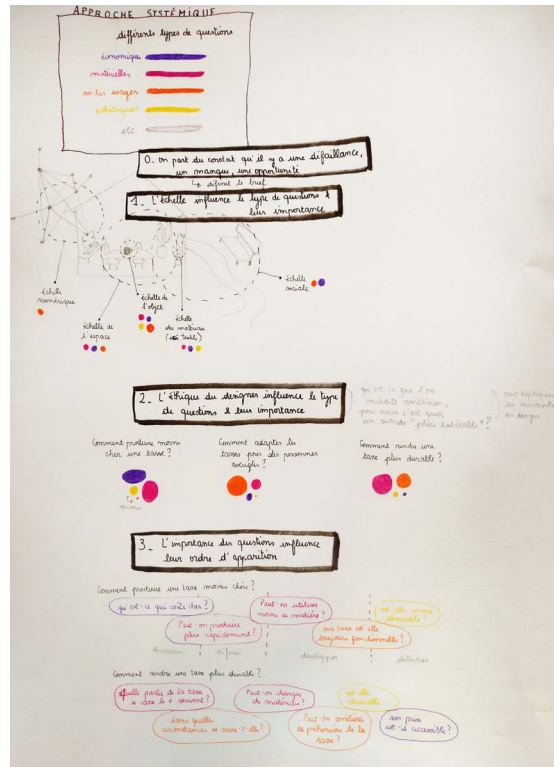 APPROCHE SYSTÉMIQUE
différents types de questions
économique
matérielles
sur les usages
esthétiques
etc
0. on part du constat qu'il y a une défaillance,
un manque, une opportunité
↳ définit le brief
1_ L'échelle influence le type de questions &
leur importance
échelle
numérique
échelle de
l'espace
échelle de
l'objet
échelle
du matériau
échelle
sociale
2_ L'éthique du designer influence le type
de questions & leur importance
qu'est ce que l'on
souhaite améliorer,
pour nous c'est quoi
un monde "plus habitable"?
peut expliquer
les courants
en design
Comment produire moins
cher une tasse?
Comment adapter les
tasses pour des personnes
aveugles?
Comment rendre une
tasse plus durable?
3_ L'importance des questions influence
leur ordre d'apparition
Comment produire une tasse moins chère?
qu'est-ce qui coûte cher?
Peut-on produire
plus rapidement?
Peut-on utiliser
moins de matière?
ma tasse est-elle
toujours fonctionnelle?
est-elle encore
désirable?
découvrir
définir
développer
délivrer
Comment rendre une tasse plus durable?
Quelle partie de la tasse
se casse le + souvent?
dans quelles
circonstances se casse-t-elle?
Peut-on changer
de matériau?
Peut-on améliorer
la préhension de la
tasse?
est-elle
désirable
son prix
est-il accessible?